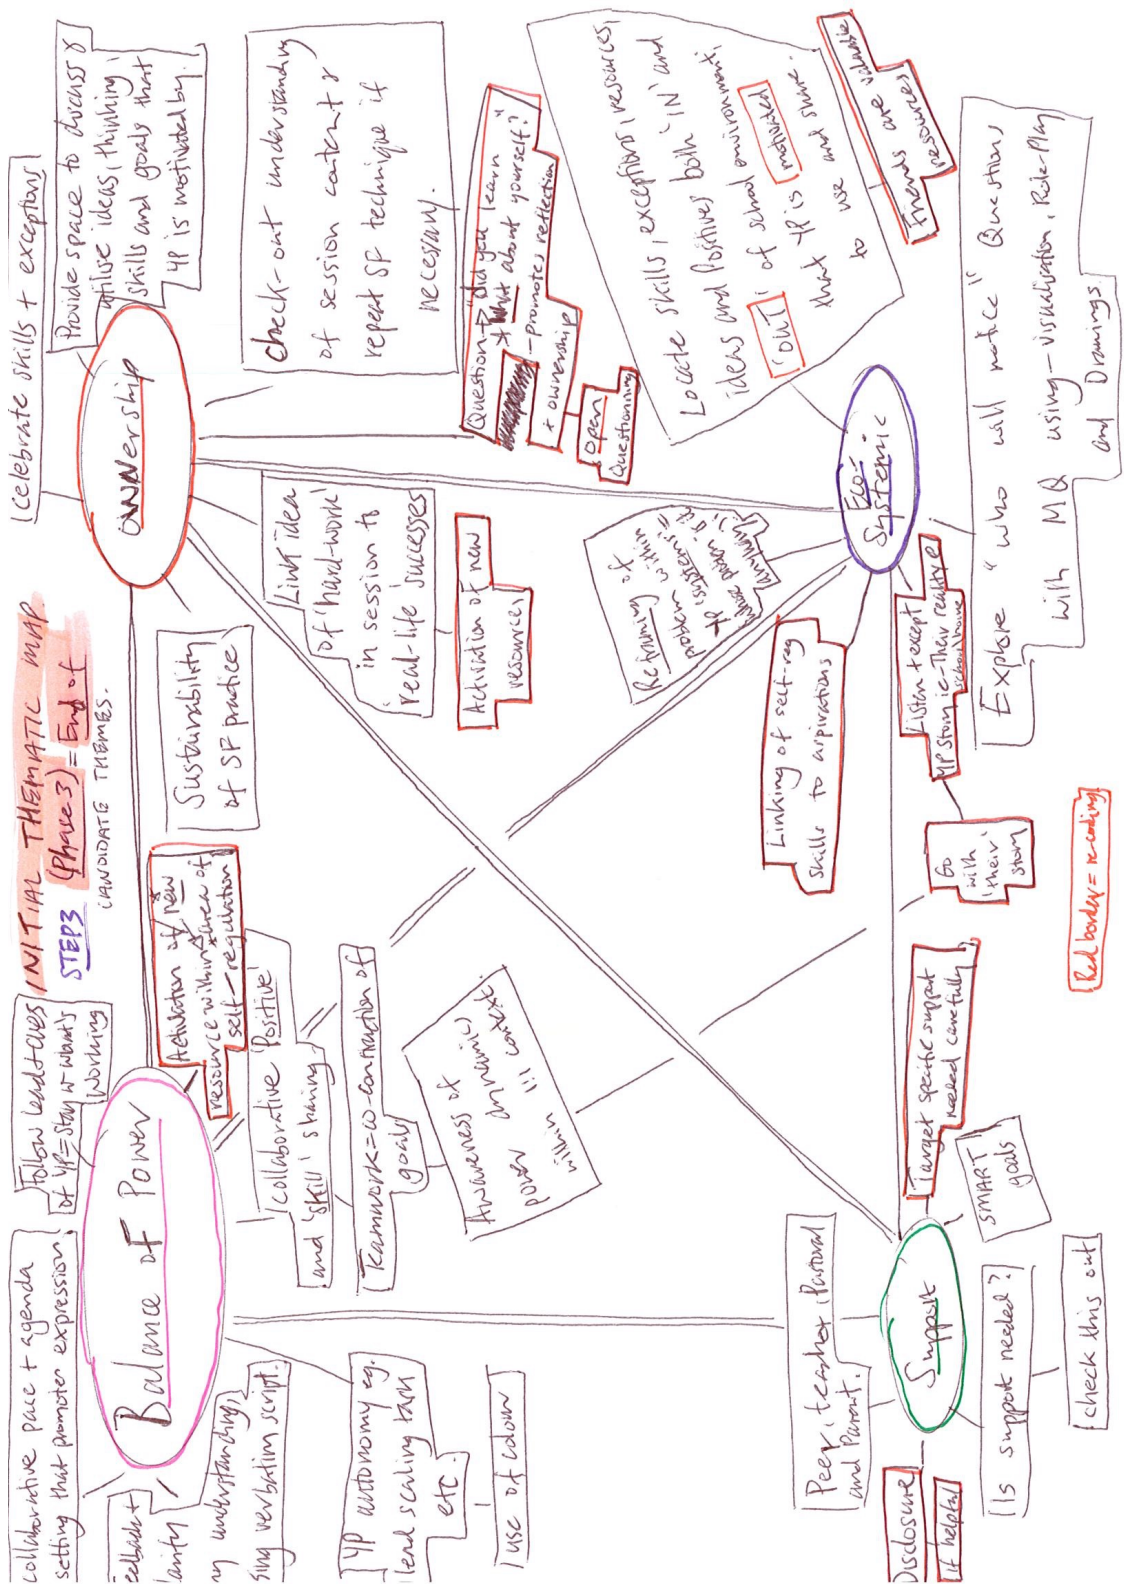 INITIAL THEMATIC MAP
(Phase 3) = End of
STEP3
CANDIDATE THEMES.
Follow lead + cues
of YP = Stay w what's
working
collaborative pace + agenda
setting that promotes expression
Balance of Power
Feedback +
clarity
understanding,
using verbatim script.
YP autonomy eg.
lend scaling task
etc.
use of colour
Activation of new
resource within area of
self-regulation
Collaborative 'Positive'
and 'skill' sharing
Teamwork = co-contraction of
goals
Awareness of
power dynamic(s)
within 1:1 context.
Celebrate skills + exceptions
OWNership
Provide space to discuss &
utilise ideas, thinking,
skills and goals that
YP is motivated by.
Check-out understanding
of session content &
repeat SF technique if
necessary.
Question → "did you learn
what about yourself?"
- promotes reflection
+ ownership
Open
Questioning
Link idea
of 'hard-work'
in session to
real-life successes
Activation of new
resources
Sustainability
of SF practice
Locate skills, exceptions, resources,
ideas and Positives both 'IN' and
'OUT' of school environment,
that YP is motivated
to use and share.
Friends are valuable
resources
Eco-
Systemic
Reframing of
problem within
YP's system(s)
Linking of self-reg
skills to aspirations
Listen + accept
YP story ie - Their reality @
school/home
Go
with
'their'
story
Explore "who will notice" Question,
with MQ using - visualisation, Role-Play
and Drawings.
Red border = re-coding
Target specific support
needed carefully
SMART
goals
Support
Peer, teacher, Pastoral
and Parent.
Is support needed?
check this out
Disclosure
if helpful